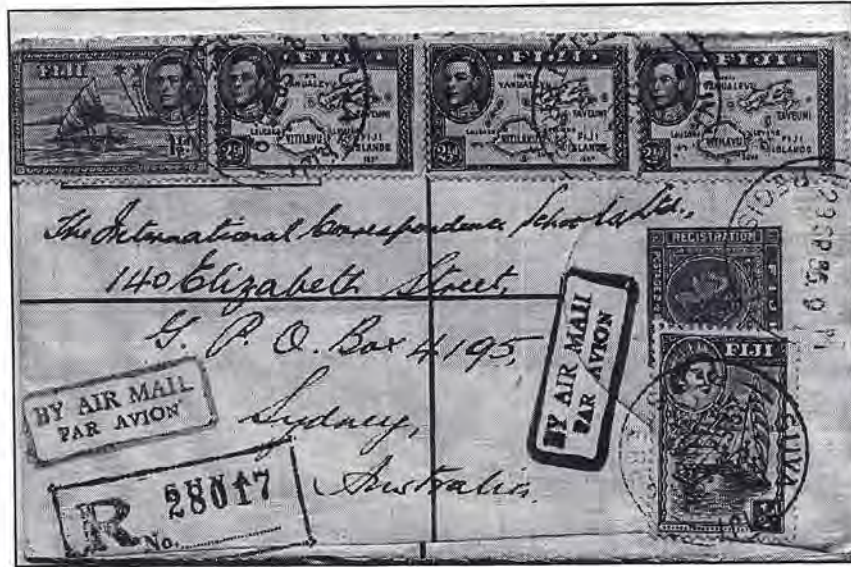 FIJI
1½d
· FIJI ·
VANUALEVU
TAVEUNI
VITILEVU
FIJI
ISLANDS
2½d
· FIJI ·
VANUALEVU
TAVEUNI
VITILEVU
FIJI
ISLANDS
2½d
· FIJI ·
VANUALEVU
TAVEUNI
VITILEVU
FIJI
ISLANDS
2½d
The International Correspondence Schools Ltd.,
140 Elizabeth Street,
G. P. O. Box 4195,
Sydney,
Australia.
REGISTRATION
FIJI
FIJI
SUVA
BY AIR MAIL
PAR AVION
BY AIR MAIL
PAR AVION
R
No.
28017